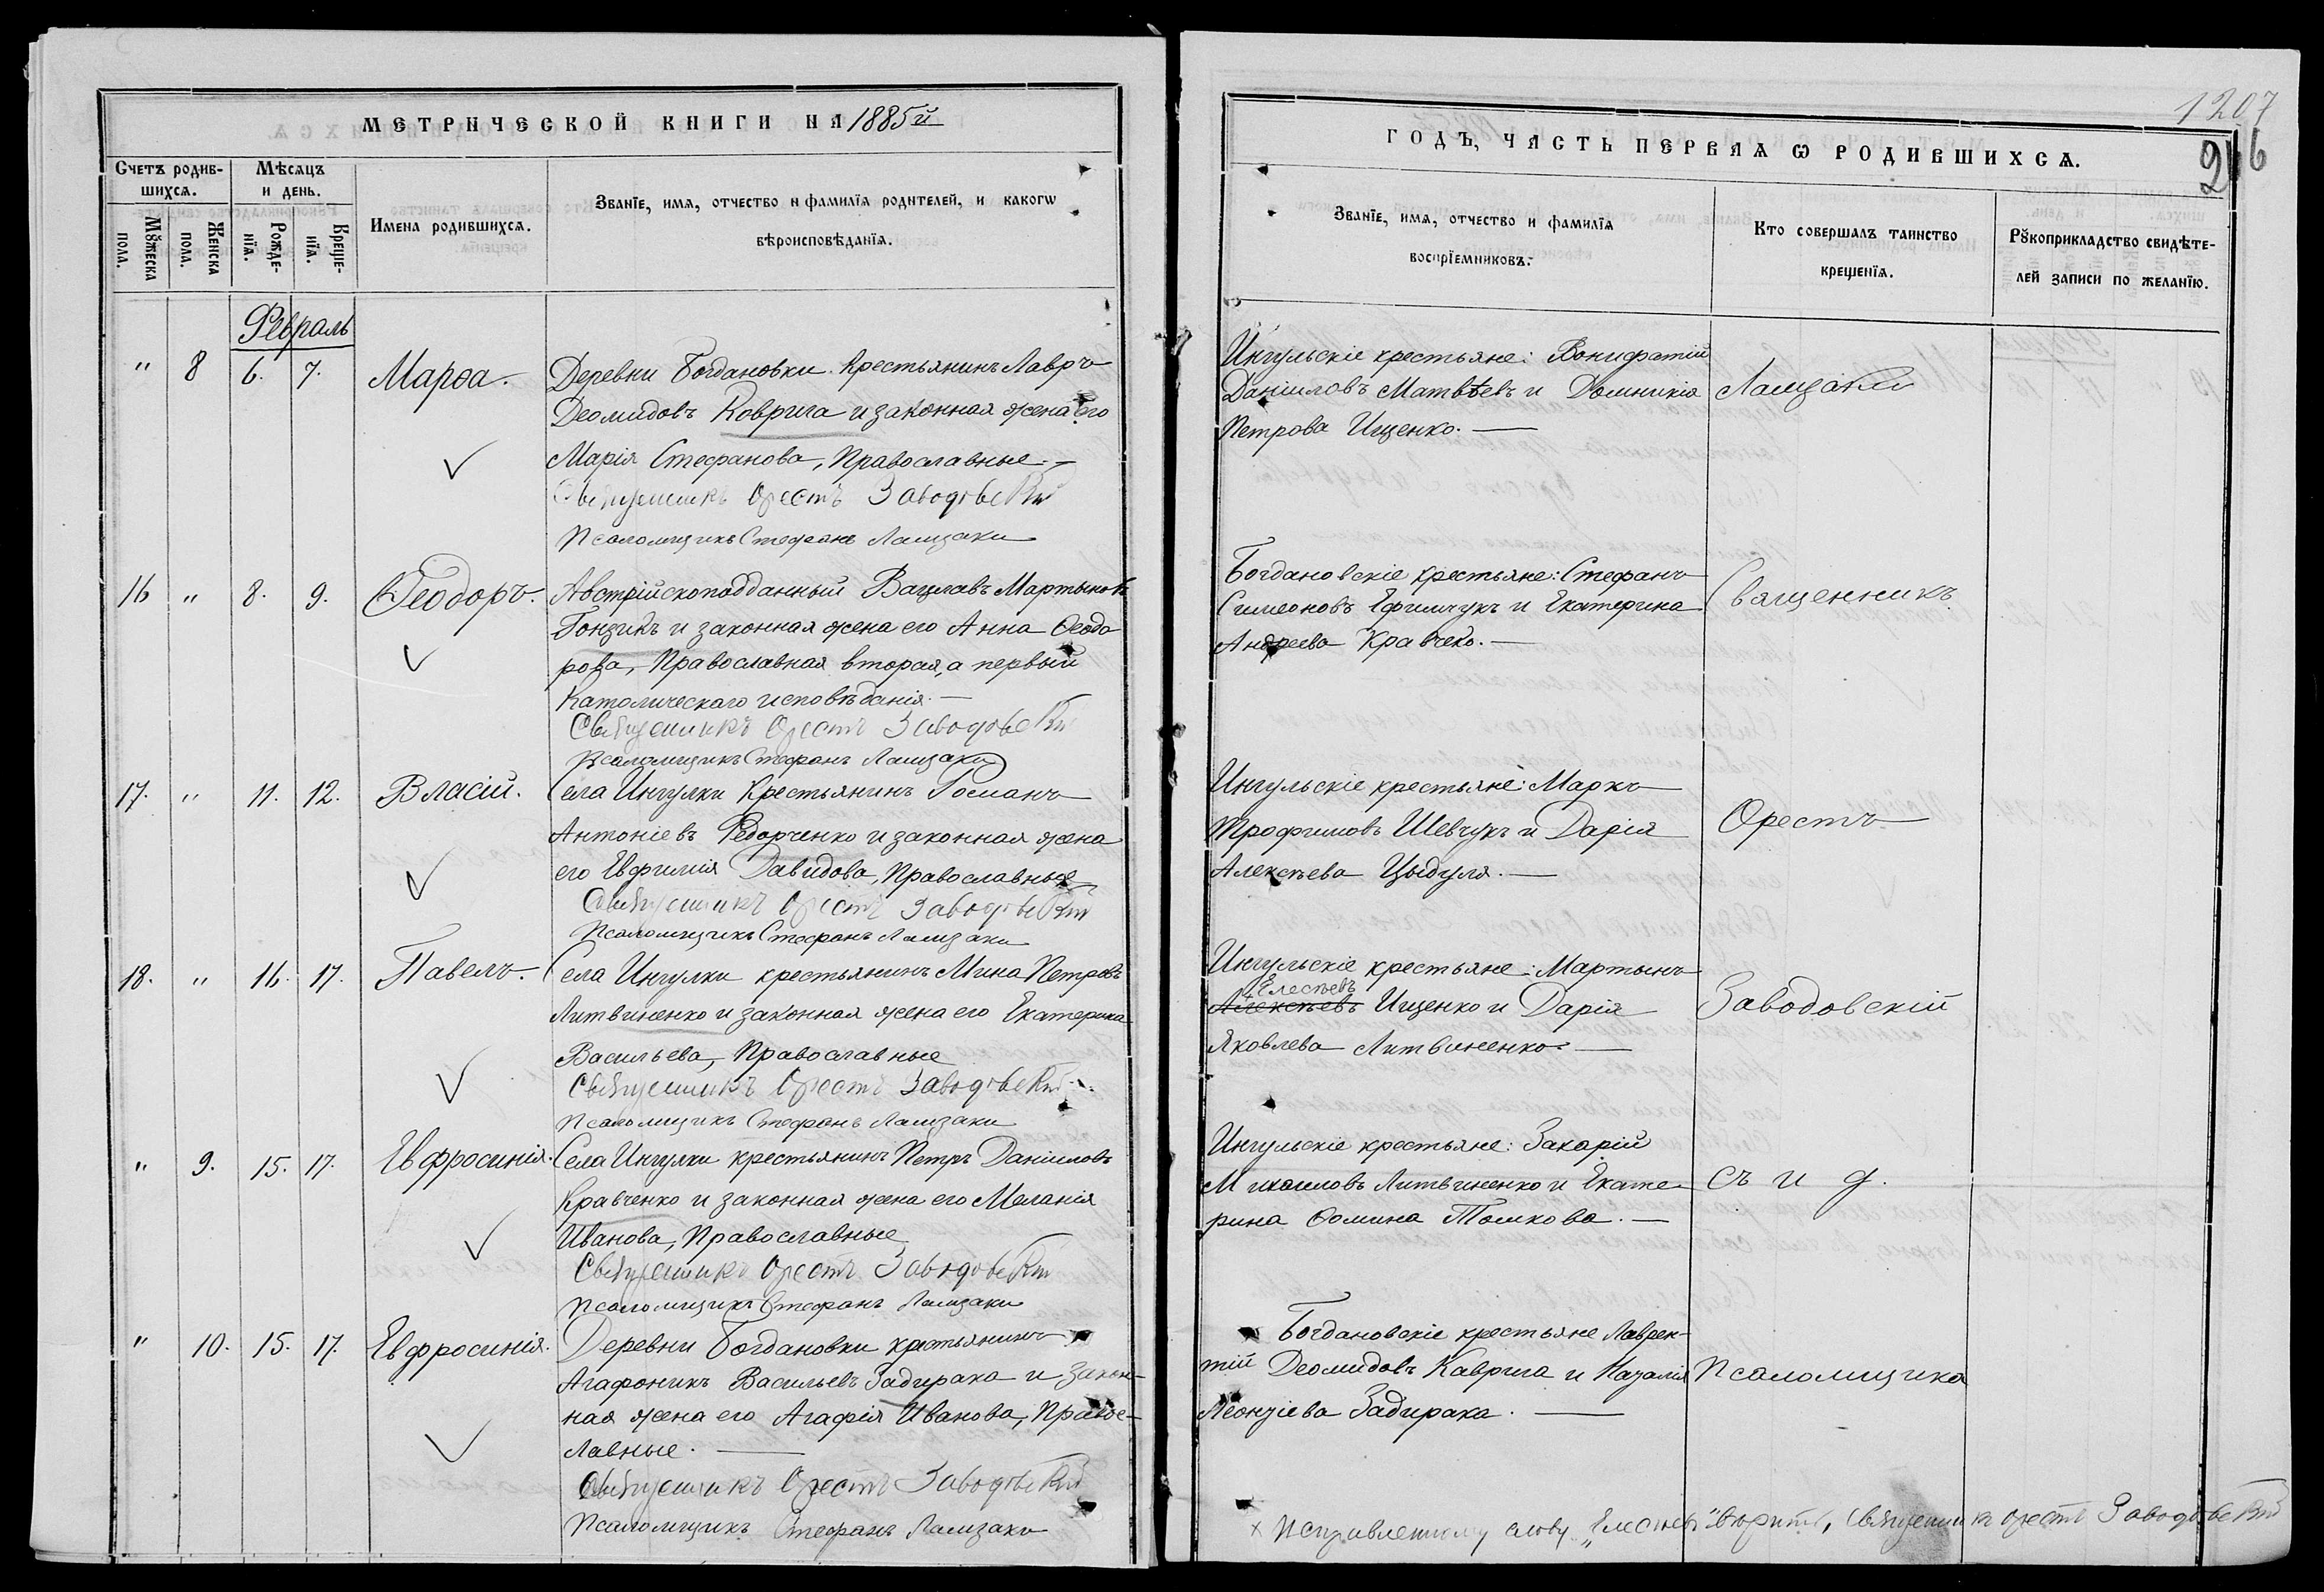 МЕТРИЧЕСКОЙ КНИГИ НА 1885й
Счетъ родив-
шихсѧ.
Мѣсѧцъ
и день.
Мꙋжеска
пола.
Женска
пола.
Рожде-
нїѧ.
Креще-
нїѧ.
Имена родившихсѧ.
Званїе, имѧ, отчество и фамилїѧ родителей, и какогѡ
вѣроисповѣданїѧ.
Февраль
" 8 6. 7. Марѳа. Деревни Богдановки Крестьянинъ Лавръ
Деомидовъ Коврига и законная жена его
Марія Стефанова, Православные.
Священникъ Орестъ Заводовскій
Псаломщикъ Стефанъ Лащзаки
16 " 8. 9. Ѳеодоръ. Австрійскоподданный Вацлавъ Мартыновъ
Гонзикъ и законная жена его Анна Ѳеодо
рова, Православная вторая, а первый
Католическаго исповѣданія.
Священникъ Орестъ Заводовскій
Псаломщикъ Стефанъ
17. " 11. 12. Власій. Села Ингулки Крестьянинъ Романъ
Антоніевъ Федорченко и законная жена
его Евфимія Давидова, Православные
Священникъ Орестъ Заводовскій
Псаломщикъ Стефанъ
18. " 16. 17. Павелъ. Села Ингулки крестьянинъ Мина Петровъ
Литвиненко и законная жена его Екатерина
Васильева, Православные
Священникъ Орестъ Заводовскій
Псаломщикъ Стефанъ
" 9. 15. 17. Евфросинія. Села Ингулки крестьянинъ Петръ Даніиловъ
Кравченко и законная жена его Меланія
Иванова, Православные
Священникъ Орестъ Заводовскій
Псаломщикъ Стефанъ
" 10. 15. 17. Евфросинія. Деревни Богдановки крестьянинъ
Агафоникъ Васильевъ Задирака и закон-
ная жена его Агафія Иванова, Правос-
лавные.
Священникъ Орестъ Заводовскій
Псаломщикъ Стефанъ
1207
ГОДЪ, ЧАСТЬ ПЕРВАѦ Ѡ РОДИВШИХСѦ.
Званїе, имѧ, отчество и фамилїѧ
воспрїемниковъ.
Кто совершалъ таинство
крещенїѧ.
Рꙋкоприкладство свидѣте-
лей записи по желанїю.
Ингульскіе крестьяне: Вонифатій
Даніиловъ Матвѣевъ и Домникія
Петрова Ищенко.
Богдановскіе крестьяне: Стефанъ
Симеоновъ Ефимчукъ и Екатерина
Андреева Кравчеко.
Священникъ
Ингульскіе крестьяне: Маркъ
Трофимовъ Шевчукъ и Дарія
Алексѣева Цыдуля.
Орестъ
Ингульскіе крестьяне: Мартынъ
Елесѣевъ
Алексѣевъ Ищенко и Дарія
Яковлева Литвиненко.
Заводовскій
Ингульскіе крестьяне: Захарій
Михаиловъ Литвиненко и Екате-
рина Ѳомина Томкова.
съ и д.
Богдановскіе крестьяне Лаврен-
тій Деомидовъ Каврига и
Леонтіева Задирака.
Псаломщика
х Исправленному слову „Елесѣевъ" вѣрить, Священникъ Орестъ Заводовскій